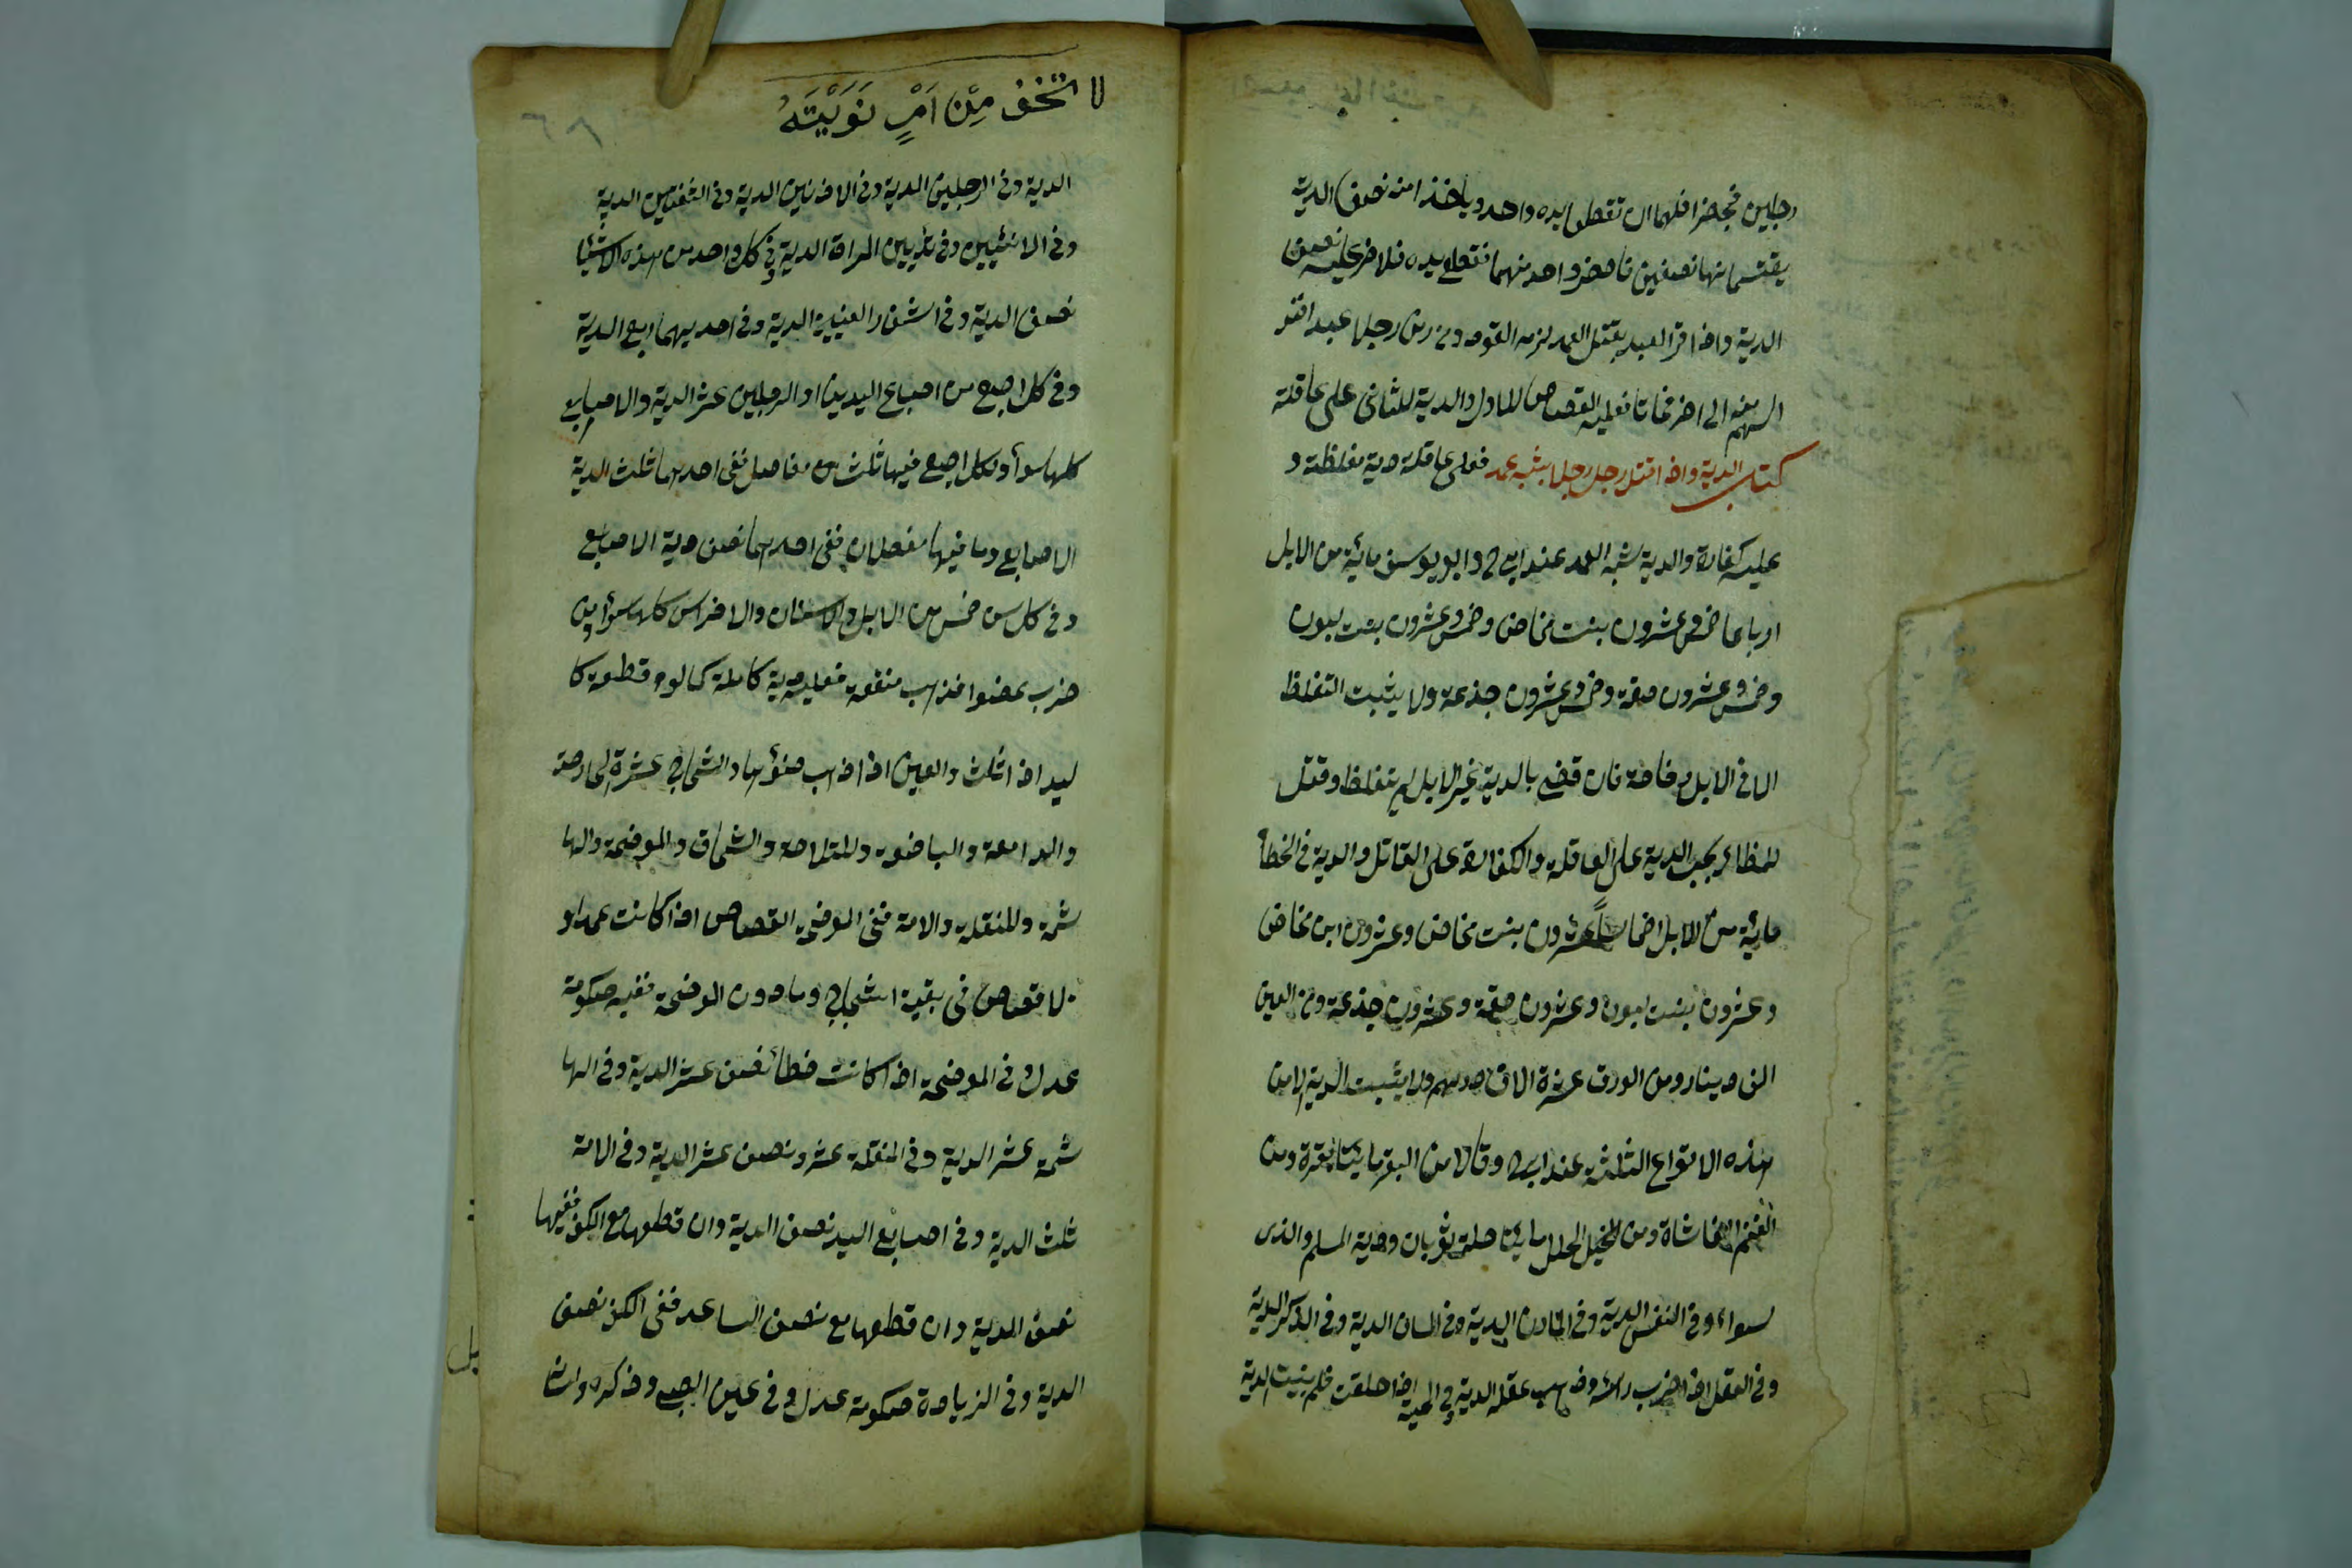 رجلين فحضرا فلهما ان تقطع يده واحد وياخذا منه نصف الدية
يقتسمانها نصفين فاحضر واحد منهما فقطع يده فللاخر عليه نصف
الدية واذا اقر العبد بقتل العمد لزمه القود ومن رمى رجلا عمدا فنفذ
السهم منه الى اخر فماتا فعليه القصاص للاول والدية للثانى على عاقلته
كتاب الدية واذا قتل رجل رجلا بشبه عمد فعلى عاقلته دية مغلظة و
عليه كفارة والدية شبه العمد عند ابى ح وابو يوسف مائة من الابل
ارباعا خمس وعشرون بنت مخاض وخمس وعشرون بنت لبون
وخمس وعشرون حقة وخمس وعشرون جذعة ولا يثبت التغلظ
الا فى الابل خاصة فان قضى بالدية غير الابل لم تتغلظ وقتل
للخطاء يجب الدية على العاقلة والكفارة على القاتل والدية فى الخطأ
مائة من الابل اخماساً عشرون بنت مخاض وعشرون ابن مخاض
وعشرون بنت لبون وعشرون حقة وعشرون جذعة ومن العين
الف دينار ومن الورق عشرة الاف درهم ولا يثبت الدية الا من
هذه الانواع الثلثة عند ابى ح وقالا من البقر مايتا بقرة ومن
الغنم الفا شاة ومن الحلل مايتا حلة ثوبان ودية المسلم والذمى
سواء وفى النفس الدية وفى المارن الدية وفى اللسان الدية وفى الذكر الدية
وفى العقل اذا ضرب راسه وذهب عقله الدية وفى اللحية اذا حلقت فلم ينبت الدية
لا تخف مِنْ اَمْرٍ نَوَيْتَهُ
٦٨
الدية وفى الرجلين الدية وفى الاذنين الدية وفى الشفتين الدية
وفى الانثيين وفى ثديين المراة الدية وفى كل واحد من هذه الاشيا
نصف الدية وفى اشفار العينين الدية وفى احديهما ربع الدية
وفى كل اصبع من اصباع اليدين او الرجلين عشر الدية والاصابع
كلها سوأ وكل اصبع فيها ثلث من مفاصل ففى احدها ثلث الدية
الاصابع وما فيها مفصلان ففى احدهما نصف دية الاصابع
وفى كل سن خمس من الابل والاسنان والاضراس كلها سوأ ومن
ضرب عضوا فذهب منفعة فعليه دية كاملة كما لو قطعه كا
ليد اذا شلت والعين اذا ذهب ضوؤها والشجاج عشرة الحارصة
والدامعة والباضعة والمتلاحمة والسمحاق والموضحة والها
شمة والمنقلة والامة ففى الموضحة القصاص اذا كانت عمدا و
لا قصاص فى بقية الشجاج وما دون الموضحة ففيه حكومة
عدل وفى الموضحة اذا كانت خطأ نصف عشر الدية وفى الها
شمة عشر الدية وفى المنقلة عشر ونصف عشر الدية وفى الامة
ثلث الدية وفى اصابع اليد نصف الدية وان قطعها مع الكف ففيها
نصف الدية وان قطعها مع نصف الساعد ففى الكف نصف
الدية وفى الزيادة حكومة عدل وفى عين الصبى وذكره ولسا